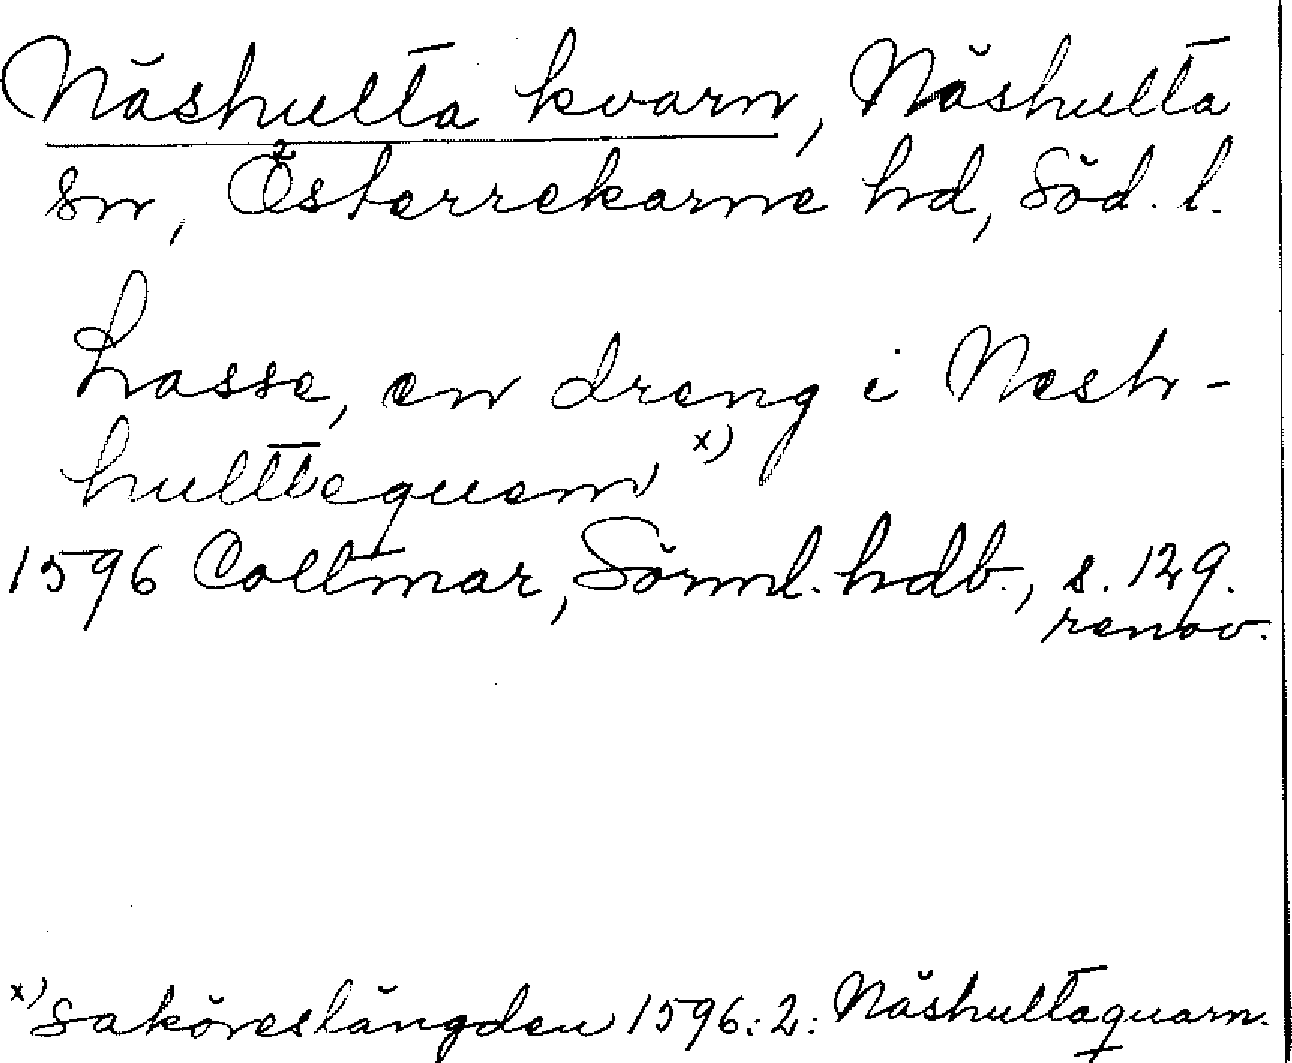 Näshulta kvarn, Näshulta
sn, Österrekarne hd, Söd. l.
Lasse, en dreng i Nesh-
hulttequern x)
1596 Collmar, Sörml. hdb., s. 129.
renov.
x) Saköreslängden 1596:2: Näshultaquarn.